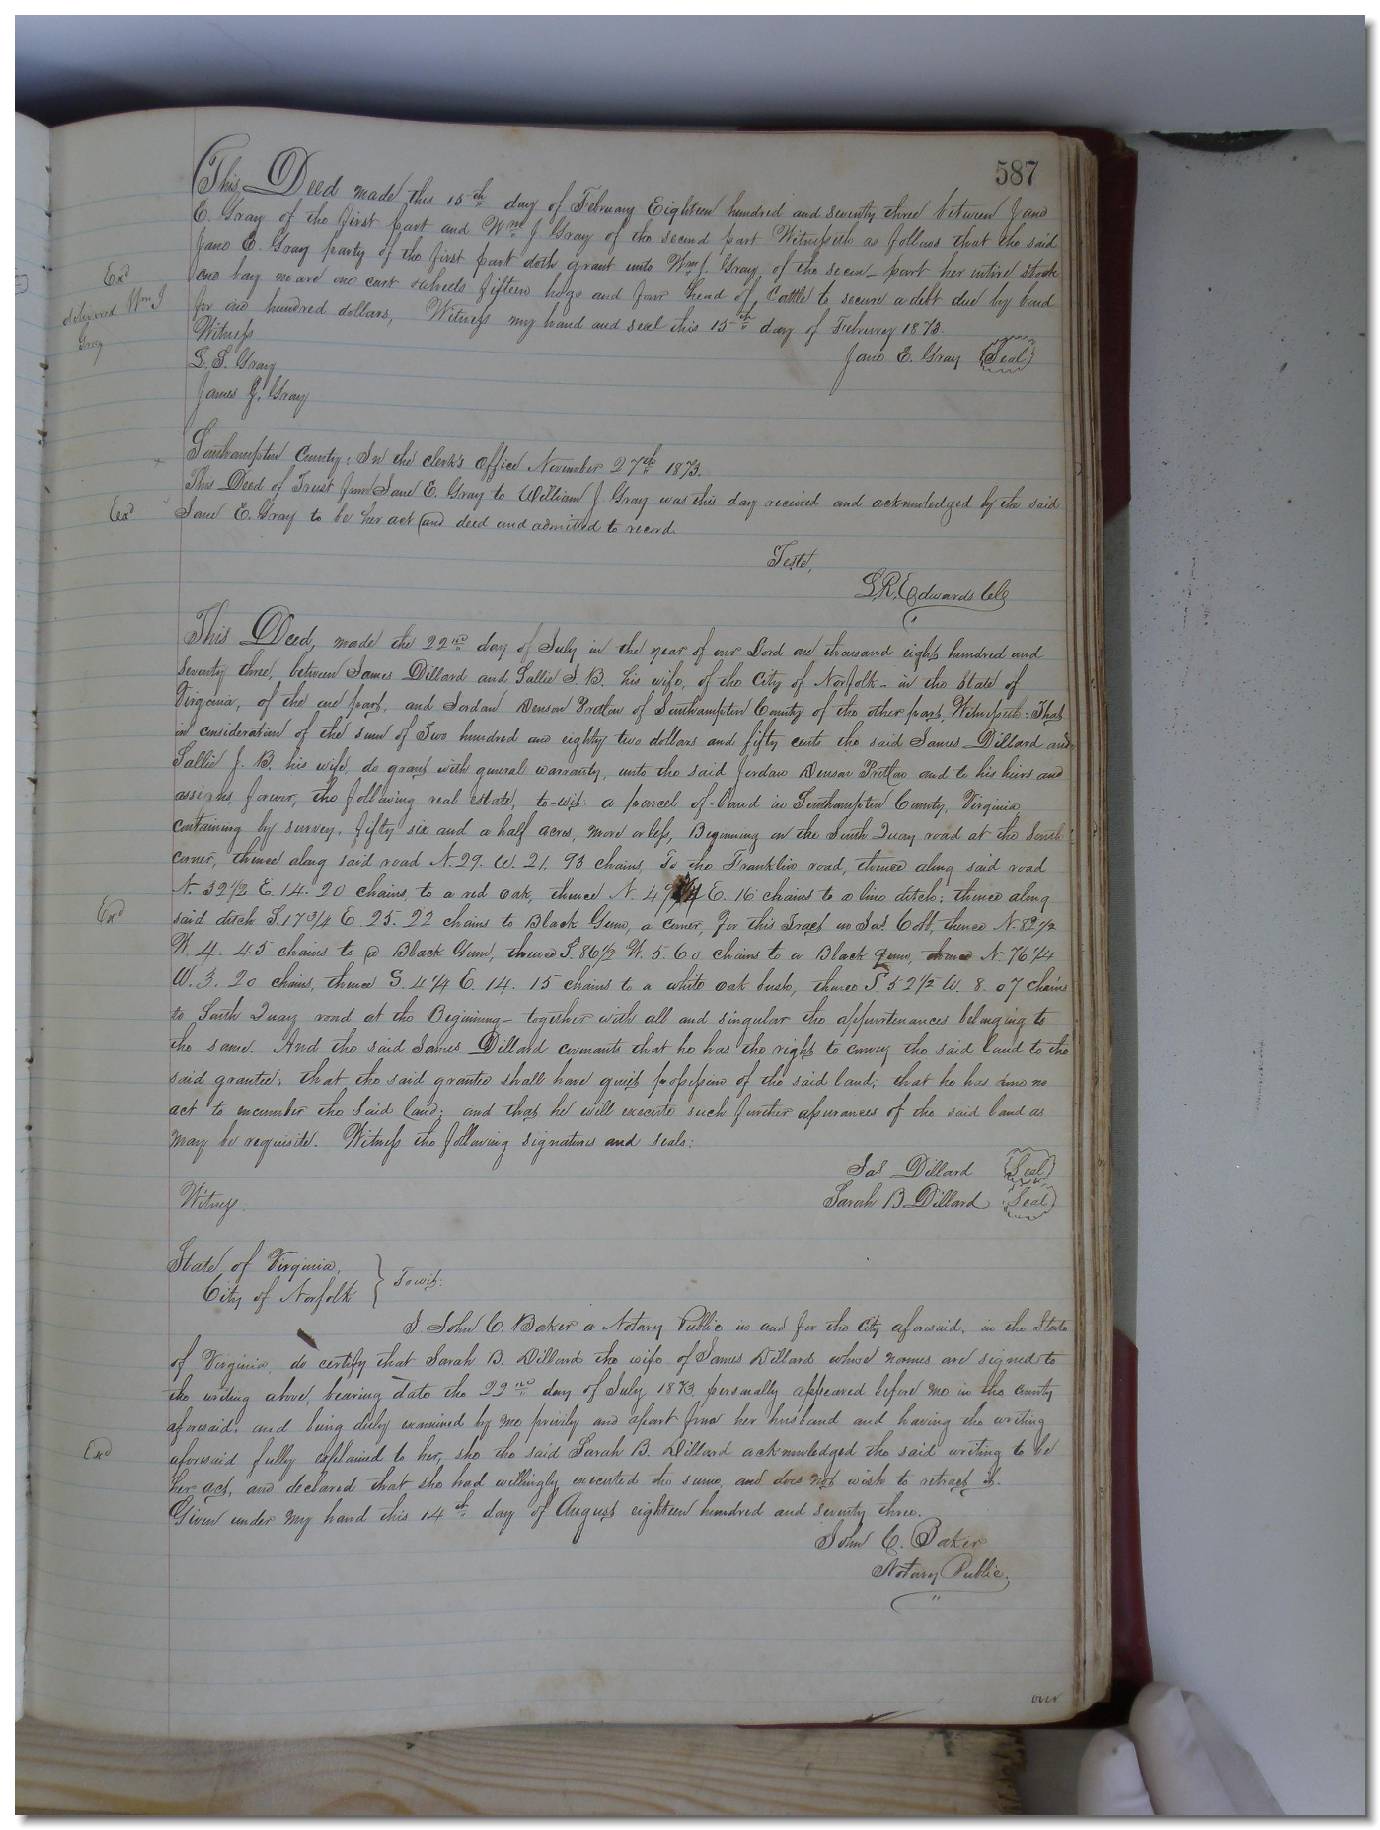 587
This Deed made this 15th day of February Eighteen hundred and seventy three between Jane
E. Gray of the first part and Wm J Gray of the second part Witnesseth as follows that the said
Jane E. Gray party of the first part doth grant unto Wm J. Gray of the secon- part her intire stock
one bay mare one cart wheels fifteen hogs and four head of Cattle to secure a debt due by bond
for one hundred dollars, Witness my hand and seal this 15th day of February 1873.
Witness
Jane E. Gray (Seal)
L. S. Gray
James G. Gray
Exd
delivered Wm J
Gray
Southampton County: In the clerk's office November 27th 1873.
This Deed of Trust from Jane E. Gray to William J Gray was this day received and acknowledged by the said
Exd
Jane E. Gray to be her act and deed and admitted to record.
Teste,
L.R. Edwards Clk
This Deed, made the 22nd day of July in the year of our Lord one thousand eight hundred and
seventy three, between James Dillard and Sallie J B. his wife, of the City of Norfolk - in the State of
Virginia, of the one part, and Jordan Denson Pretlow of Southampton County of the other part, Witnesseth: That
in consideration of the sum of Two hundred and eighty two dollars and fifty cents the said James Dillard and
Sallie J. B. his wife, do grant with general warranty, unto the said Jordan Denson Pretlow and to his heirs and
assigns forever, the following real estate, to-wit: a parcel of land in Southampton County, Virginia
containing by survey, fifty six and a half acres, more or less, Beginning on the South Quay road at the South
corner, thence along said road N. 29. W. 21. 93 chains, To the Franklin road, thence along said road
N. 32 1/2 E. 14. 20 chains, to a red oak, thence N. 1/4 E. 16 chains to a line ditch; thence along
Exd
said ditch S 17 3/4 E. 25. 22 chains to Black Gum, a corner, for this Tract on Jas. Cobb, thence N. 82 1/2
W. 4. 45 chains to a Black Gum, thence S. 86 1/2 W. 5. 60 chains to a Black gum, thence N. 76 1/4
W. 3. 20 chains, thence S. 4 1/4 E. 14. 15 chains to a white oak bush, thence S. 52 1/2 W. 8. 07 chains
to South Quay road at the Begining - together with all and singular the appurtenances belonging to
the same. And the said James Dillard covenants that he has the right to convey the said land to the
said grantee; that the said grantee shall have quiet possession of the said land; that he has done no
act to encumber the said land; and that he will execute such further assurances of the said land as
may be requisite. Witness the following signatures and seals:
Jas Dillard (Seal)
Witness
Sarah B Dillard (Seal)
State of Virginia,
City of Norfolk } Towit:
I John C. Baker a Notary Public in and for the City aforesaid, in the State
of Virginia, do certify that Sarah B. Dillard the wife of James Dillard whose names are signed to
the writing above, bearing date the 22nd day of July 1873, personally appeared before me in the county
aforesaid, and being duly examined by me privily and apart from her husband and having the writing
Exd
aforesaid fully explained to her, she the said Sarah B. Dillard acknowledged the said writing to be
her act, and declared that she had willingly executed the same, and does not wish to retract it.
Given under my hand this 14th day of August eighteen hundred and seventy three.
John C. Baker
Notary Public.
over